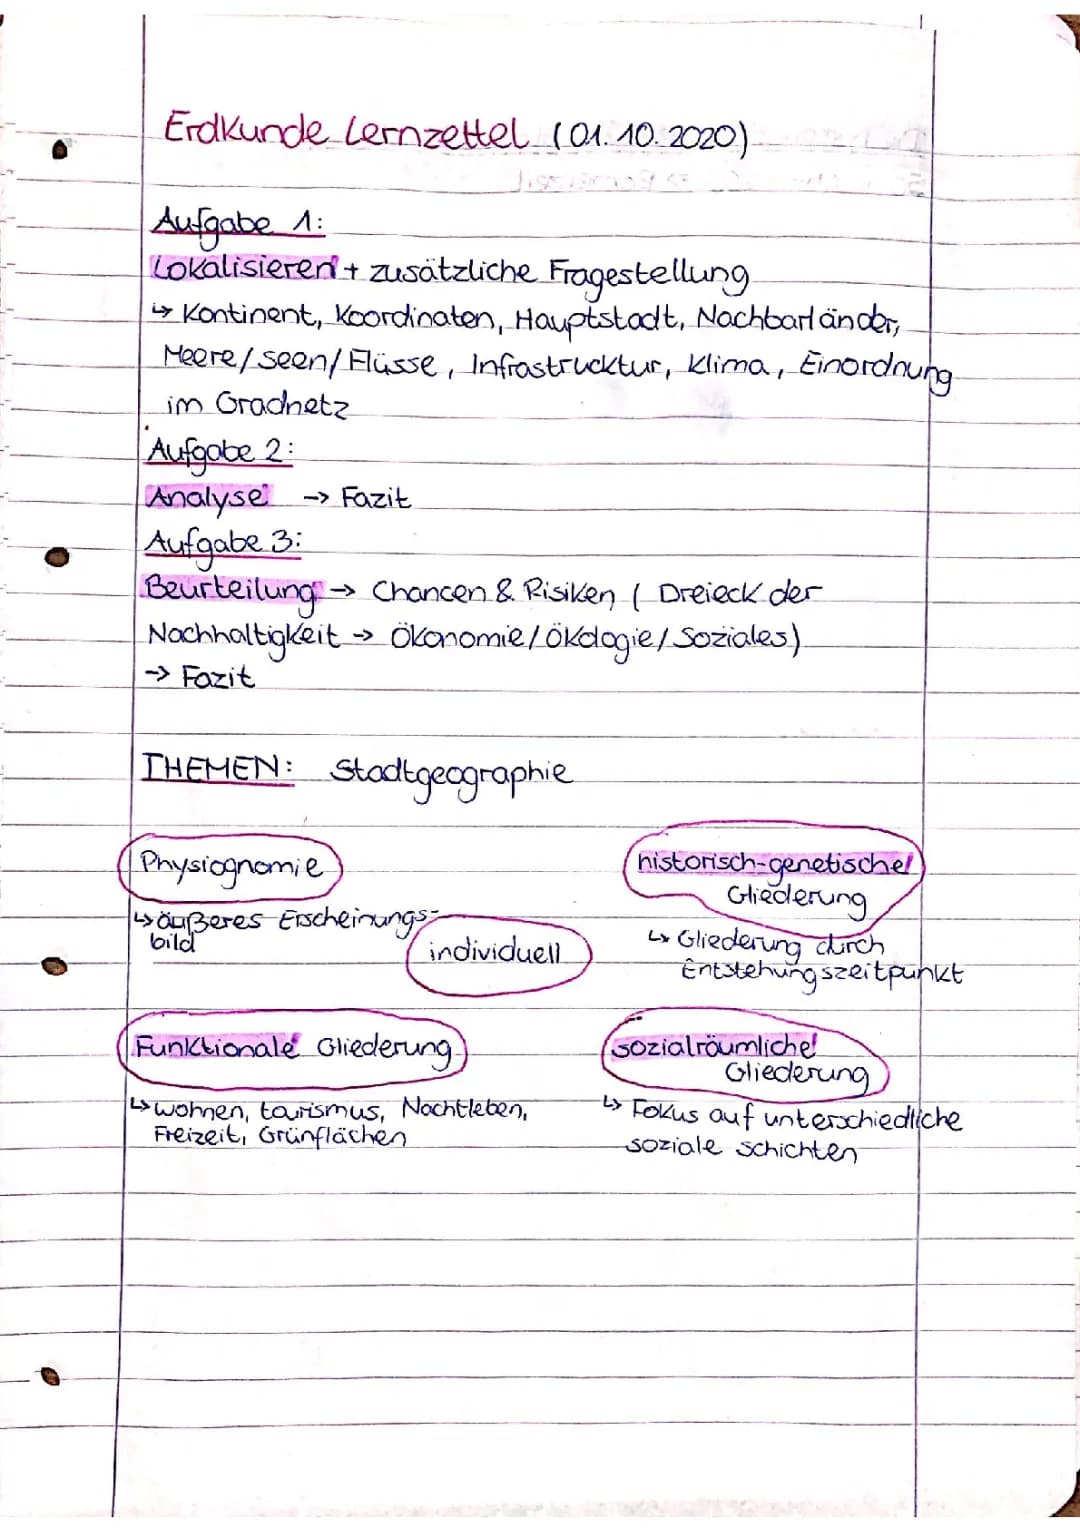 Erdkunde Lernzettel (01.10.2020)
Aufgabe 1:
Lokalisieren + zusätzliche Fragestellung
↳ Kontinent, Koordinaten, Hauptstadt, Nachbarländer,
Meere/Seen/Flüsse, Infrastrucktur, Klima, Einordnung
im Gradnetz
Aufgabe 2:
Analyse → Fazit
Aufgabe 3:
Beurteilung → Chancen & Risiken ( Dreieck der
Nachhaltigkeit → Ökonomie/Ökologie/Soziales)
→ Fazit
THEMEN: Stadtgeographie
Physiognomie
↳ äußeres Erscheinungs-
bild
individuell
historisch-genetische
Gliederung
↳ Gliederung durch
Entstehungszeitpunkt
Funktionale Gliederung
↳ wohnen, tourismus, Nachtleben,
Freizeit, Grünflächen
sozialräumliche
Gliederung
↳ Fokus auf unterschiedliche
soziale schichten